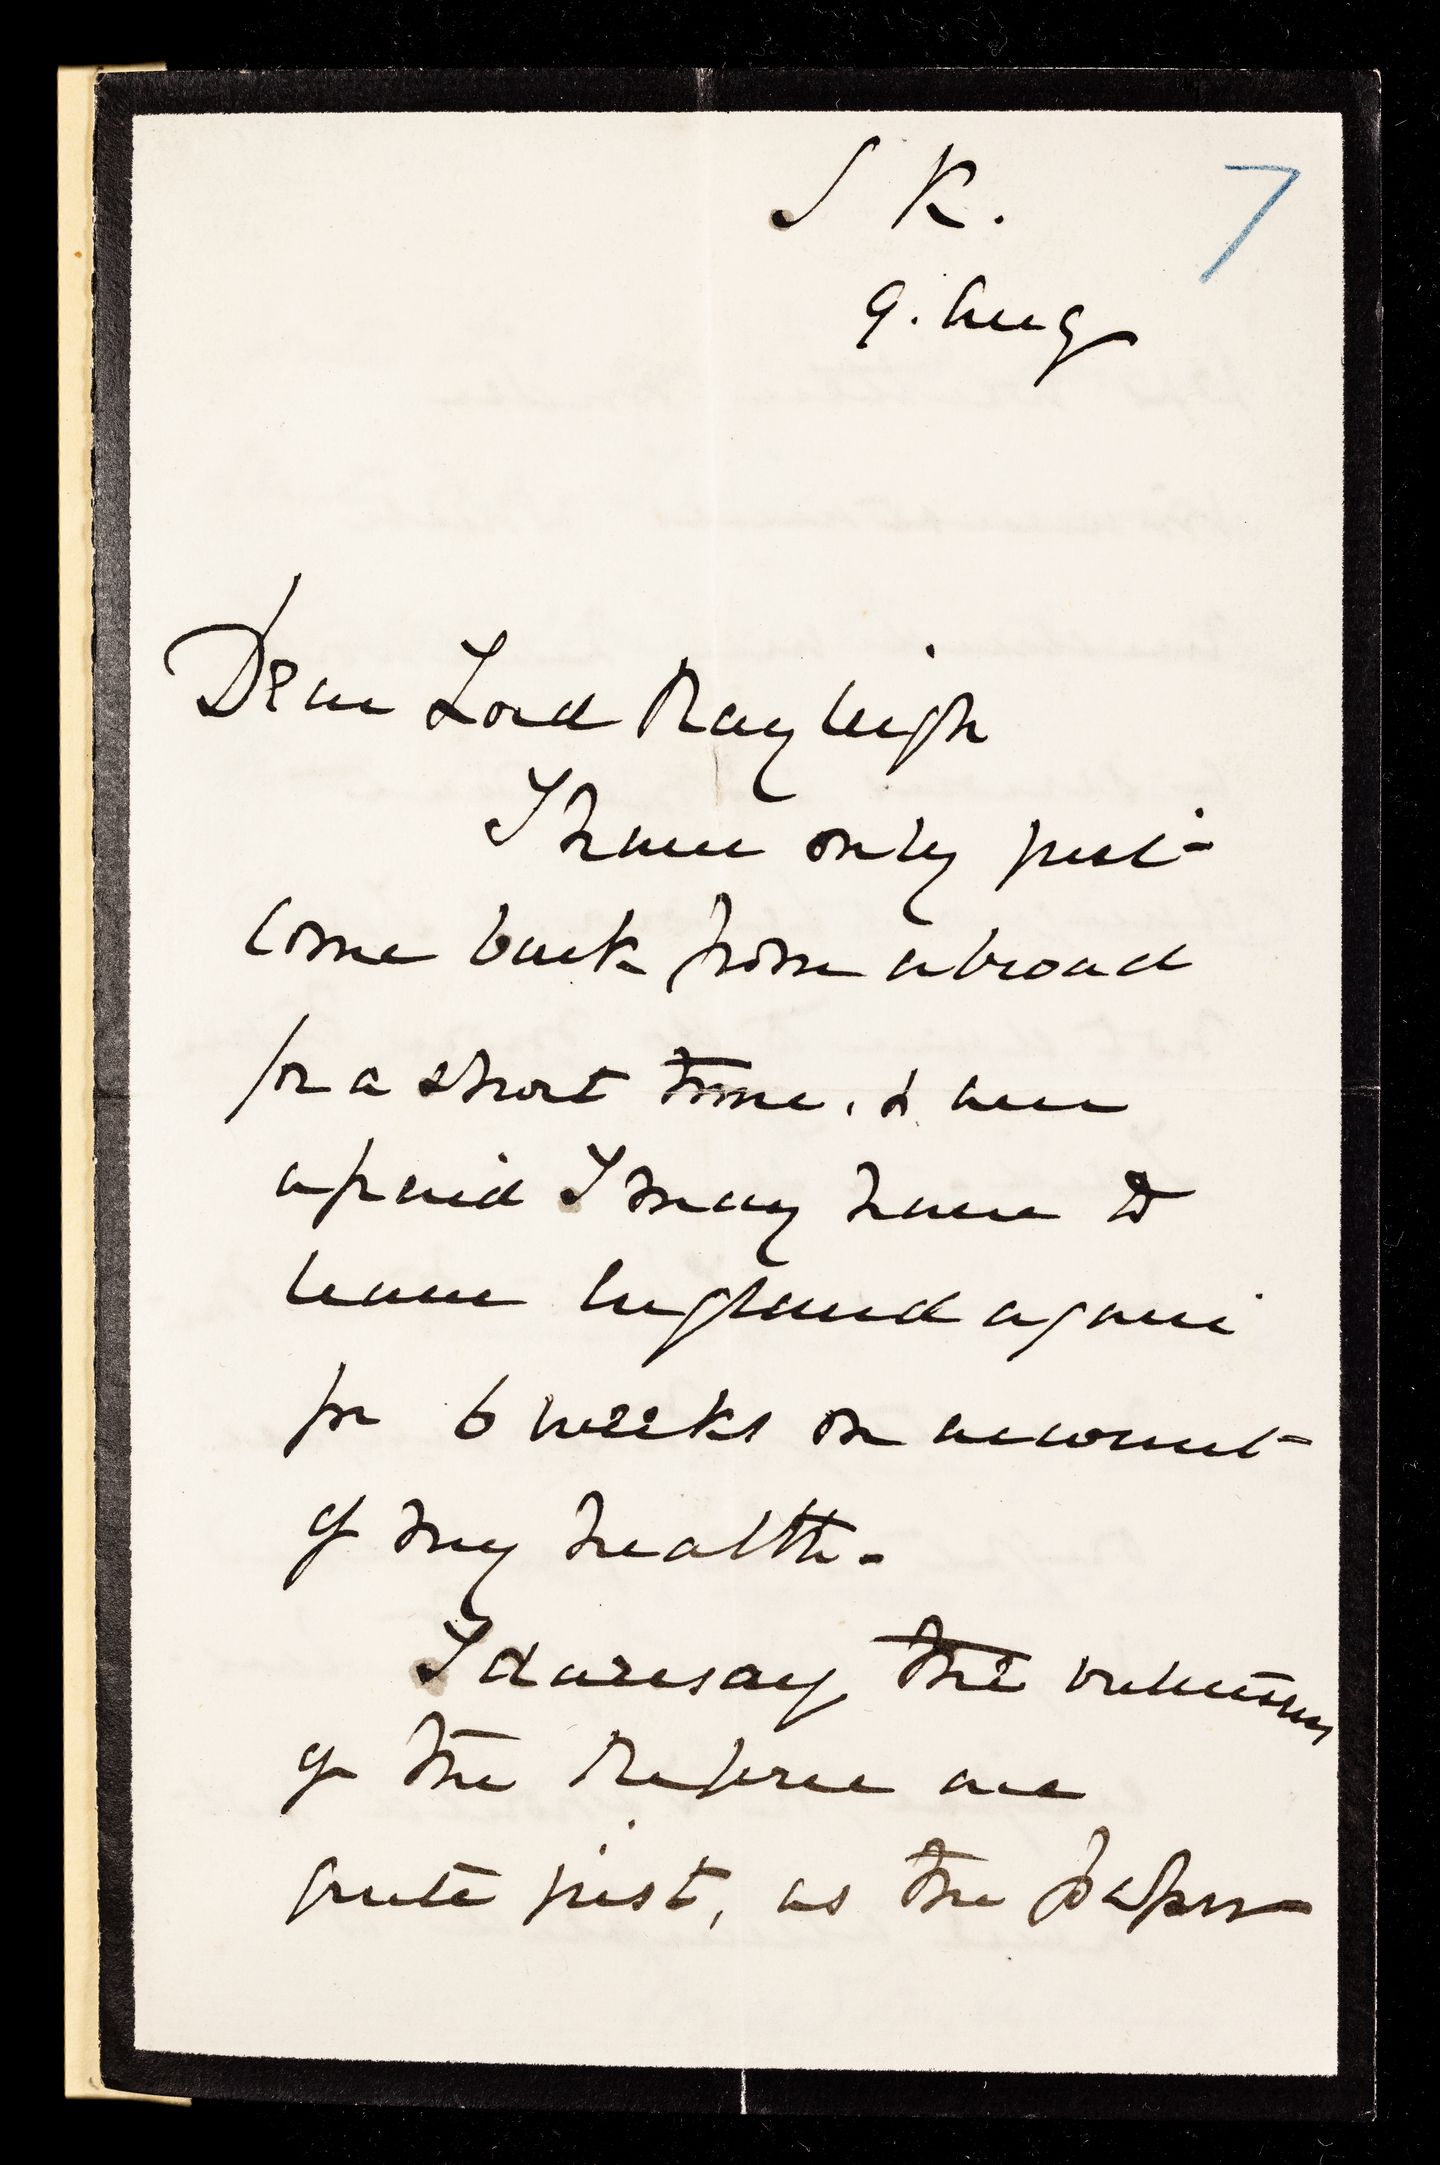 S K.
7
9. Aug
Dear Lord Rayleigh
I have only just
come back from abroad
for a short time, & am
afraid I may have to
leave England again
for 6 weeks on account
of my health.
I daresay the criticisms
of the Referee are
quite just, as the paper